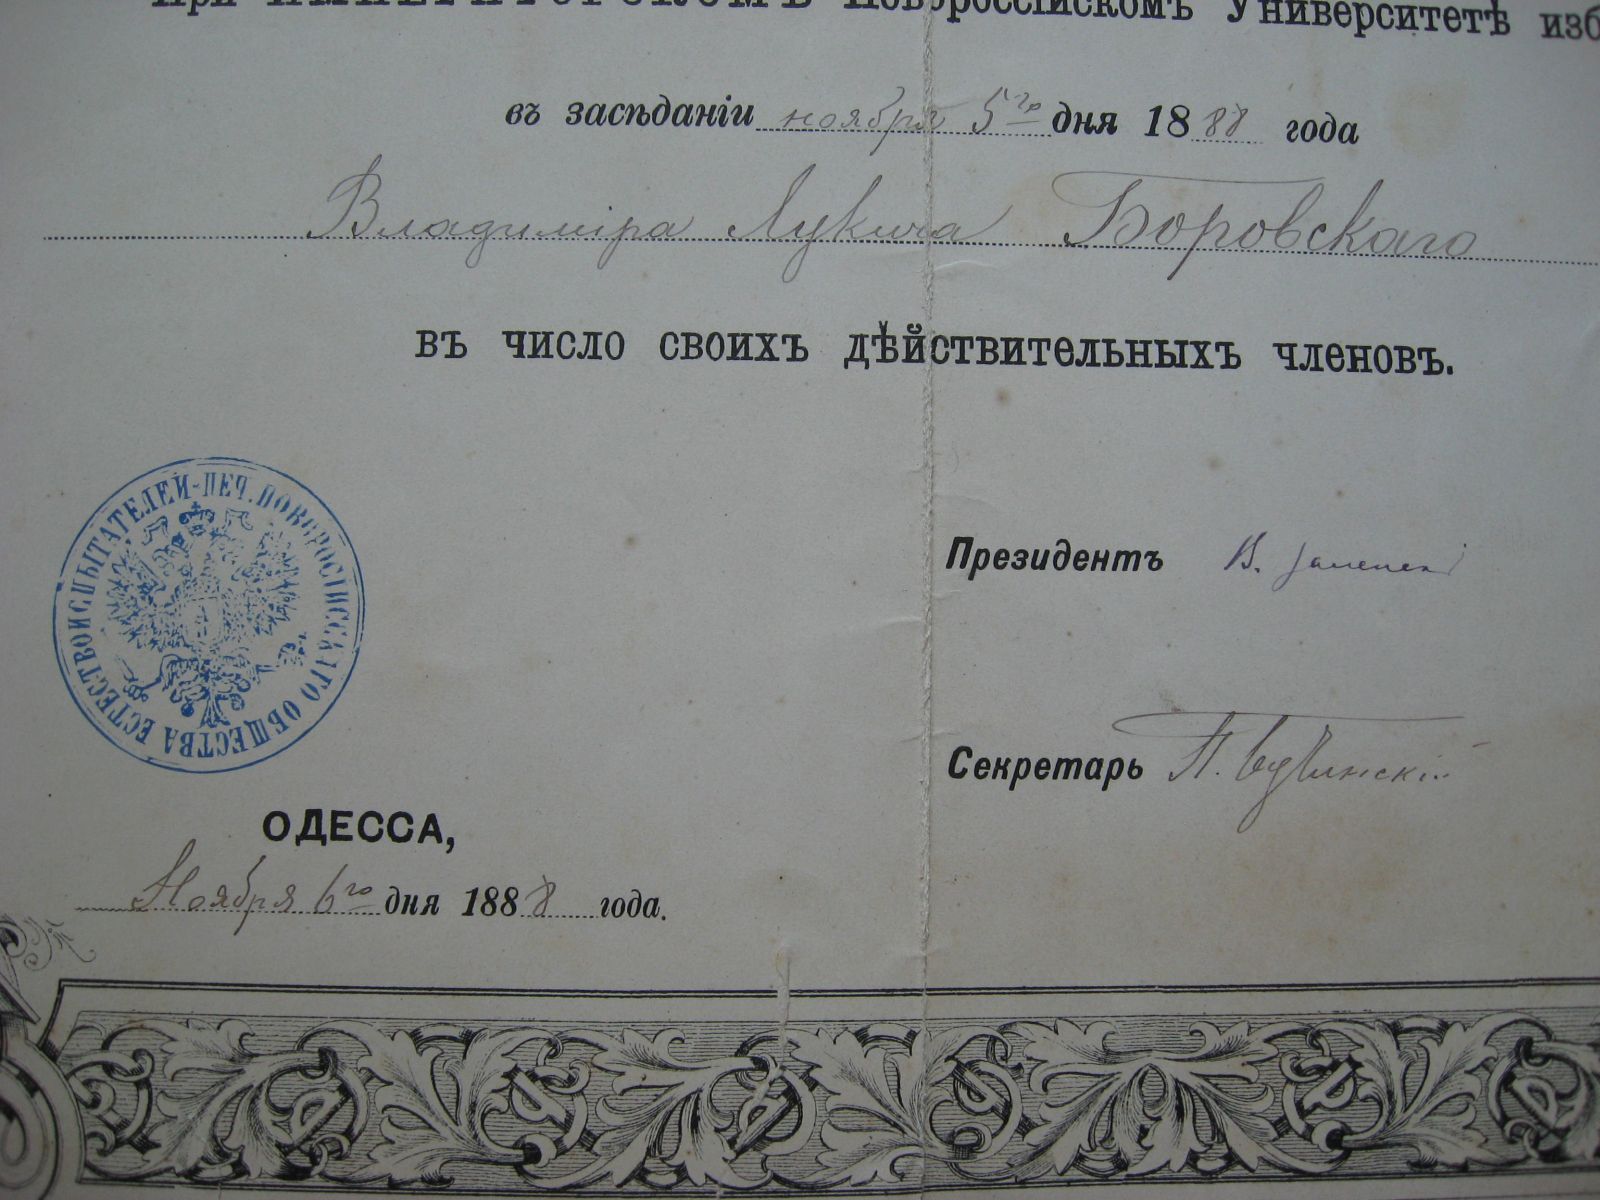 при ИМПЕРАТОРСКОМЪ Новороссійскомъ Университетѣ изб
въ засѣданіи ноября 5го дня 1888 года
Владиміра Лукича Боровскаго
въ число своихъ дѣйствительныхъ членовъ.
ПЕЧ. НОВОРОССІЙСКАГО ОБЩЕСТВА ЕСТЕСТВОИСПЫТАТЕЛЕЙ
Президентъ В. Заленскі
Секретарь П. Бучинскій
ОДЕССА,
Ноября 6го дня 1888 года.